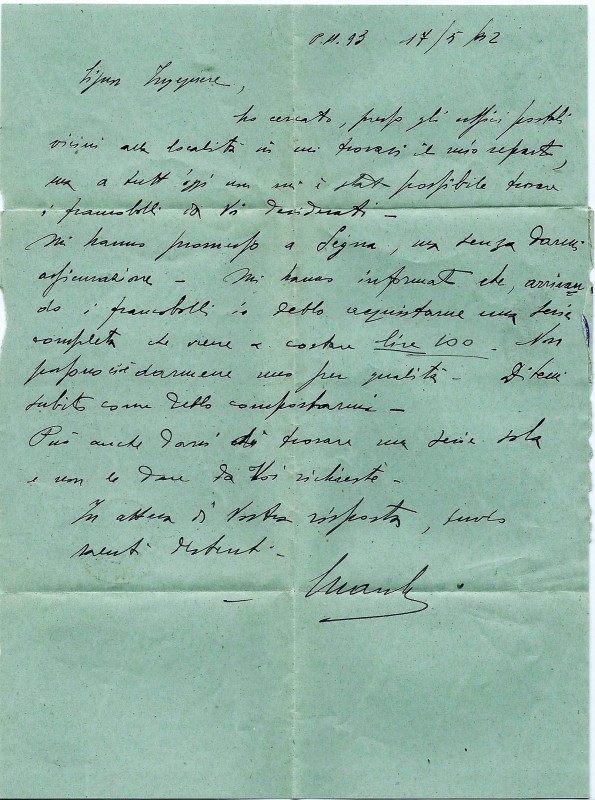 P.M. 93 17/5/42
Signor Ingegnere,
ho cercato, presso gli uffici postali
vicini alla località in cui trovasi il mio reparto,
ma a tutt'oggi non mi è stato possibile trovare
i francobolli da Vi desiderati -
Mi hanno promesso a Segna, ma senza darmi
assicurazione - Mi hanno informato che, arrivan
do i francobolli io debbo acquistarne una serie
completa che viene a costare lire 100. Non
possono cioè darmene uno per qualità - Ditemi
subito come debbo comportarmi -
Può anche darsi di trovare una serie sola
e non le due da Voi richieste -
In attesa di Vostra risposta, invio
saluti distinti -